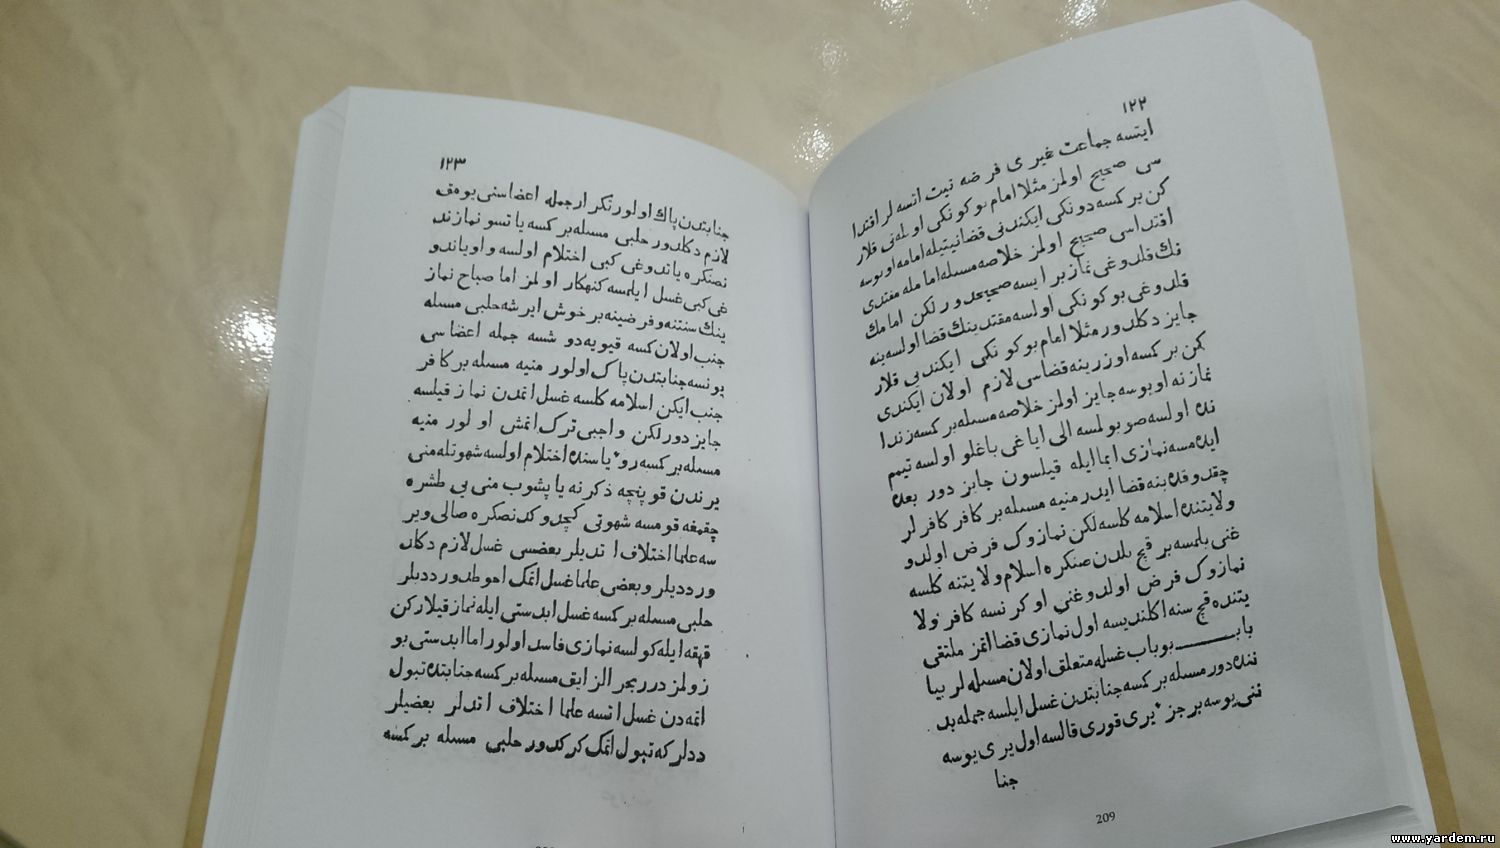 ١٢٢
ايتسه جماعت غيرى فرضه نيت اتسه لر اقتدا
سى صحيح اولمز مثلا امام بوكونكى اويله نى قلار
كن بر كسه دونكى ايكندنى قضا نيتيله امامه اويوسه
اقتداسى صحيح اولمز خلاصه مسئله امامله مقتدى
نك قلدوغى نماز بر ايسه صحيحدور لكن امامك
قلدوغى بوكونكى اولسه مقتدينك قضا اولسه ينه
جايز دكلدور مثلا امام بوكونكى ايكندىيى قلار
كن بر كسه اوزرينه قضاسى لازم اولان ايكندى
نمازنه اويوسه جايز اولمز خلاصه مسئله بر كسه زندا
نده اولسه صو بولمسه الى اياغى باغلو اولسه تيمم
ايده مسه نمازى ايما ايله قيلسون جايز دور بعده
چقدوقده ينه قضا ايدر منيه مسئله بر كافر كافر لر
ولايتنده اسلامه كلسه لكن نمازوك فرض اولدو
غنى بلمسه بر قچ يلدن صنكره اسلام ولايتنه كلسه
نمازوك فرض اولدوغنى اوكرنسه كافر ولا
يتنده قچ سنه اكلنديسه اول نمازى قضا اتمز ملتقى
باب بو باب غسله متعلق اولان مسئله لر بيا
ننده دور مسئله بر كسه جنابتدن غسل ايلسه جمله بد
ننى يوسه بر جزء يرى قورى قالسه اول يرى يوسه
جنا
209
١٢٣
جنابتدن پاك اولور تكرار جمله اعضاسنى يومق
لازم دكلدور حلبى مسئله بر كسه ياتسو نمازند
نصنكره ياندوغى كبى احتلام اولسه و اوياندو
غى كبى غسل ايلمسه كنهكار اولمز اما صباح نماز
ينك سنتنه و فرضينه بر خوش ايرشه حلبى مسئله
جنب اولان كسه قيويه دوشسه جمله اعضاسى
يونسه جنابتدن پاك اولور منيه مسئله بر كافر
جنب ايكن اسلامه كلسه غسل اتمدن نماز قيلسه
جايز دور لكن واجبى ترك اتمش اولور منيه
مسئله بر كسه رؤياسنده احتلام اولسه شهوتله منى
يرندن قوپنجه ذكرنه ياپشوب منى يى طشره
چقمغه قومسه شهوتى كچدوكدنصكره صالى وير
سه علما اختلاف اتديلر بعضسى غسل لازم دكلد
ور ديديلر و بعضى علما غسل اتمك احوطدور ديديلر
حلبى مسئله بر كسه غسل ابدستى ايله نماز قيلاركن
قهقه ايله كولسه نمازى فاسد اولور اما ابدستى بو
زولمز درر بحر الرايق مسئله بر كسه جنابتده تبول
اتمه دن غسل اتسه علما اختلاف اتدلر بعضيلر
ددلر كه تبول اتمك كركدور حلبى مسئله بر كسه
www.yardem.ru